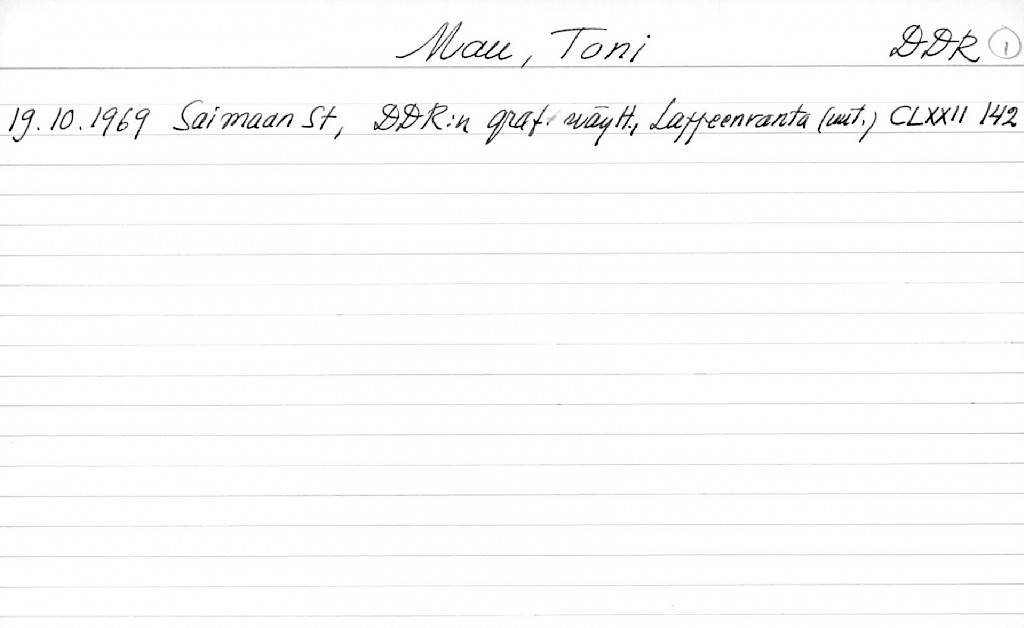 Mau, Toni DDR 1
19.10.1969 Saimaan St, DDR:n graf. näytt., Lappeenranta (uut.) CLXXII 142